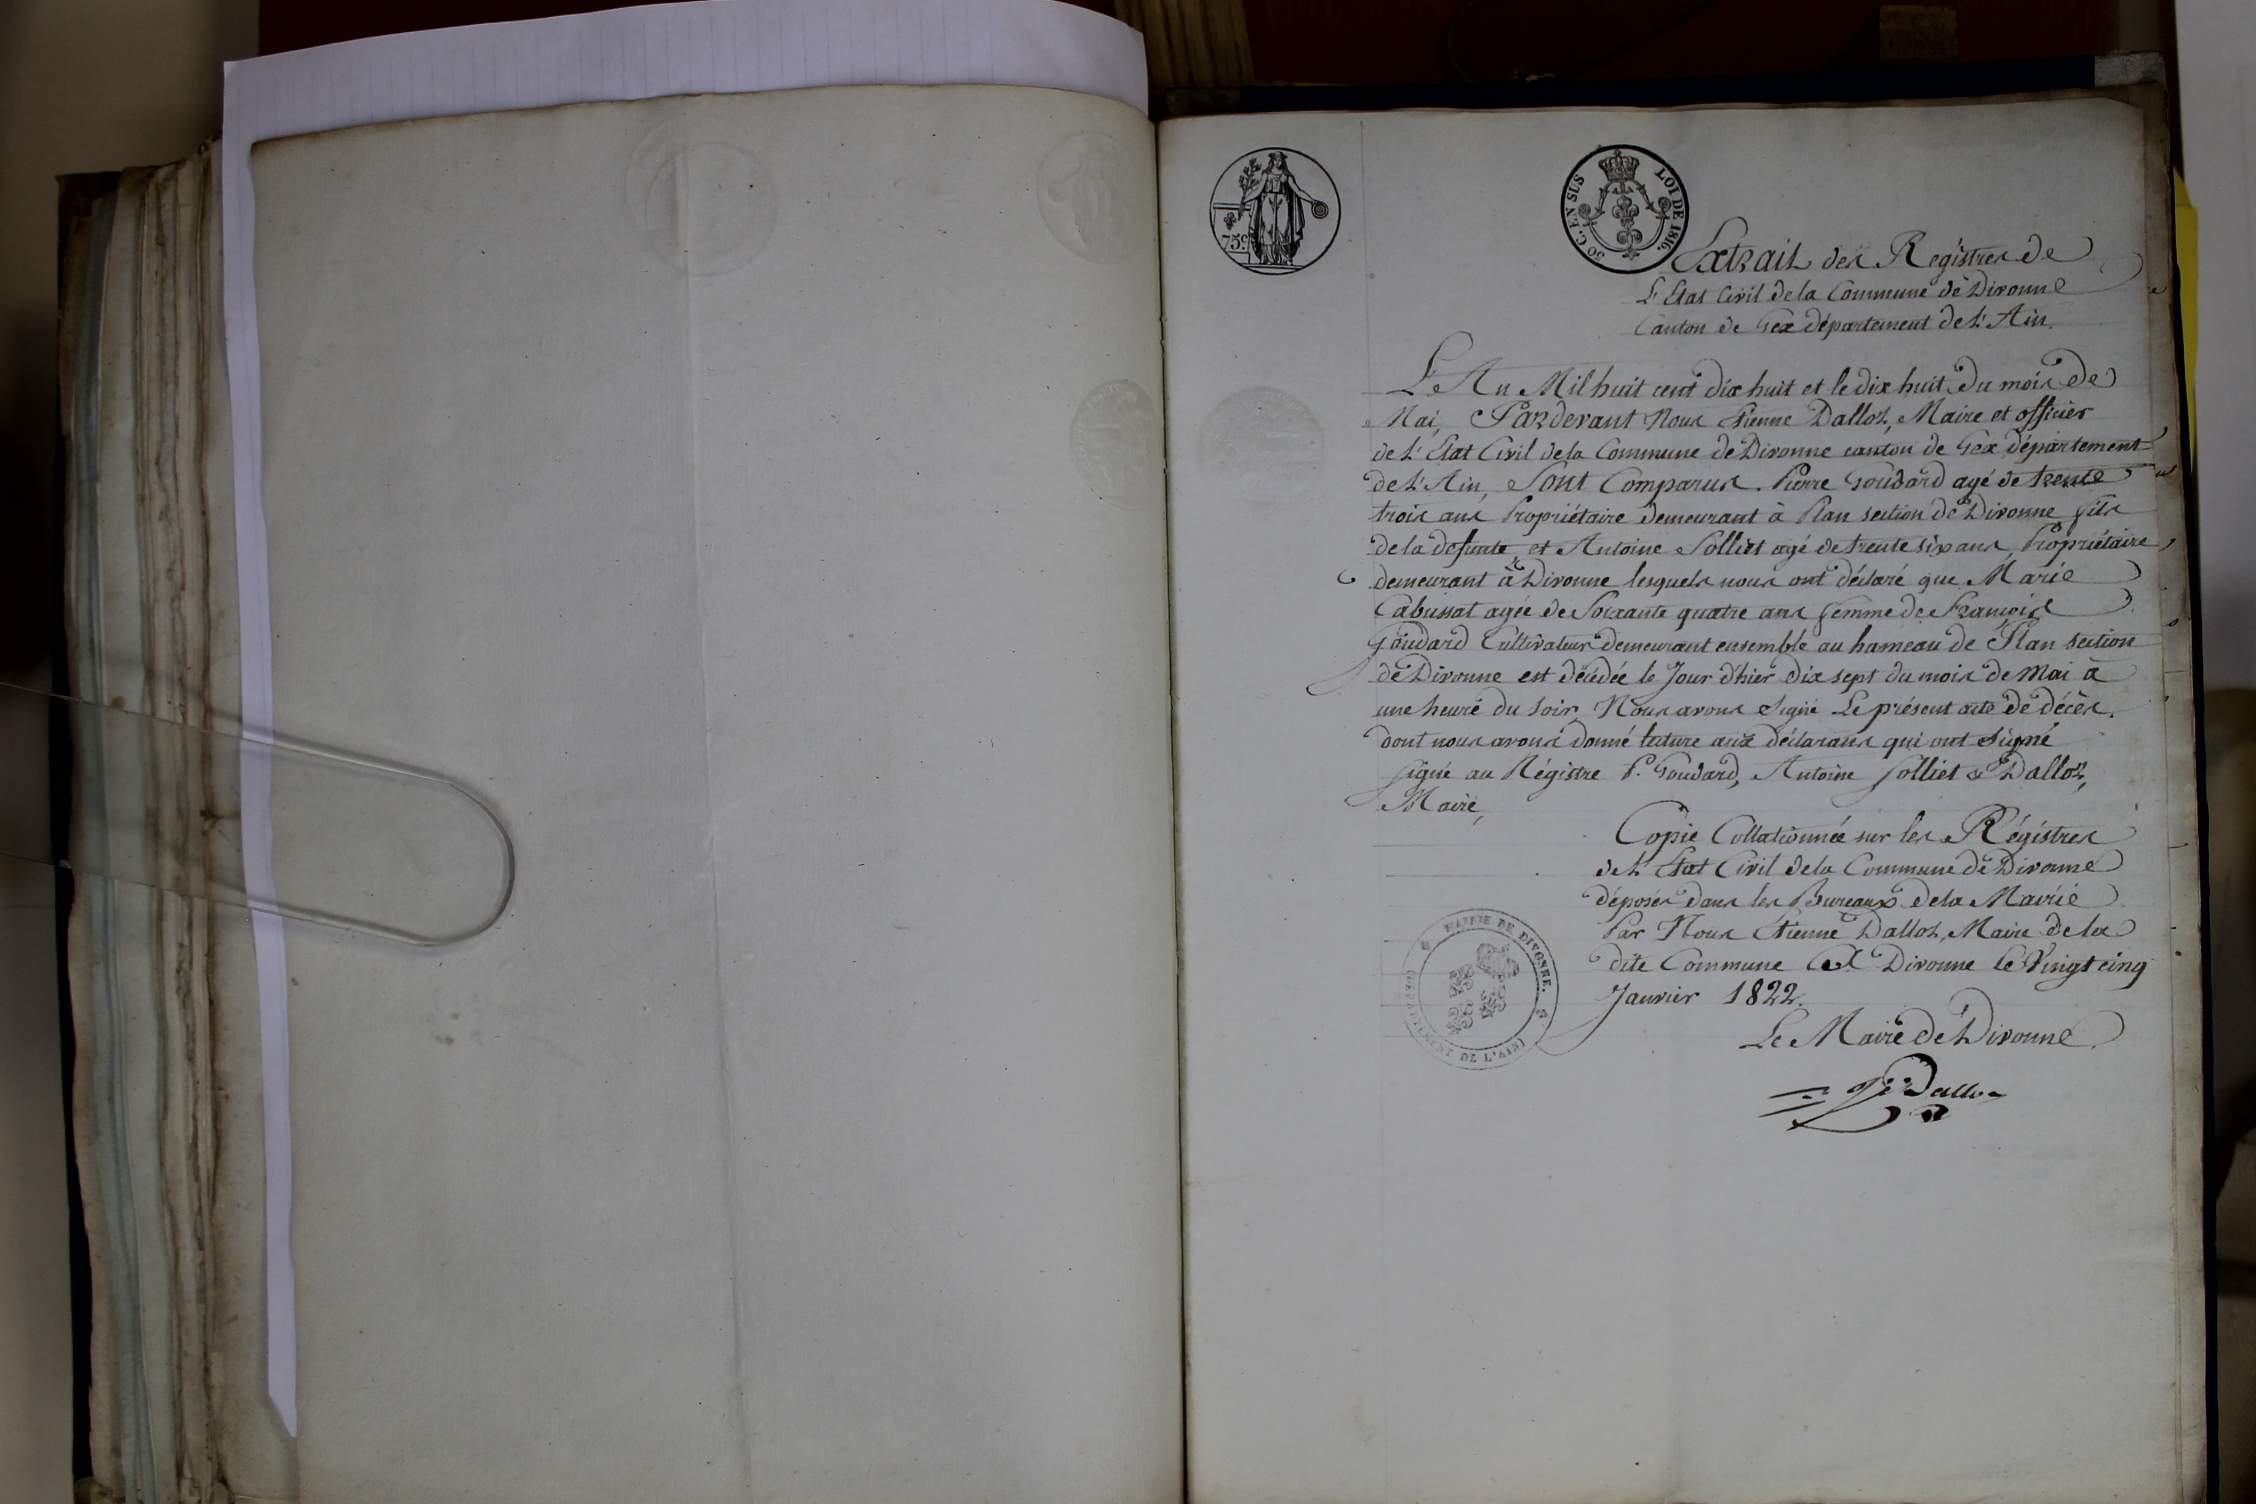 75c
50 C. EN SUS LOI DE 1816.
Extrait des Registres de
L'Etat Civil de la Commune de Divonne
Canton de Gex département de L'Ain.
L'An Mil huit cent dix huit et le dix huit du mois de
Mai, Pardevant Nous Etienne Dalloz, Maire et officier
de L'Etat Civil de la Commune de Divonne canton de Gex département
de L'Ain, Sont Comparus. Pierre Goudard agé de trente
trois ans Propriétaire demeurant à Plan section de Divonne fils
de la defunte, et Antoine Solliet agé de trente six ans, Propriétaire,
demeurant à Divonne lesquels nous ont déclaré que Marie
Cabussat agée de Soixante quatre ans femme de François
Goudard Cultivateur demeurant ensemble au hameau de Plan section
de Divonne est décédée le Jour d'hier dix sept du mois de Mai à
une heure du soir, Nous avons signé Le présent acte de décès.
dont nous avons donné lecture aux déclarans qui ont signé
signé au Régistre P. Goudard, Antoine Solliet & Dalloz,
Maire,
Copie Collationnée sur les Régistres
de L'Etat Civil de la Commune de Divonne
déposés dans les Bureaux de la Mairie
Par Nous Etienne Dalloz, Maire de la
dite Commune A Divonne le Vingt cinq
Janvier 1822.
MAIRIE DE DIVONNE.
(DÉPARTEMENT DE L'AIN)
Le Maire de Divonne
Dalloz